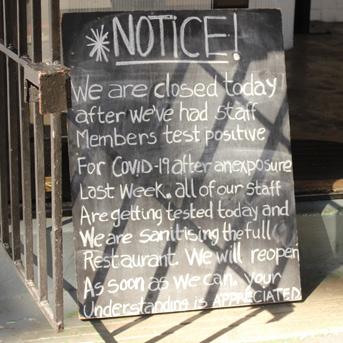 *NOTICE!
We are closed today
after we've had staff
Members test positive
For COVID-19 after an exposure
Last Week, all of our staff
Are getting tested today and
We are sanitising the full
Restaurant. We will reopen
As soon as we can, your
Understanding is APPRECIATED